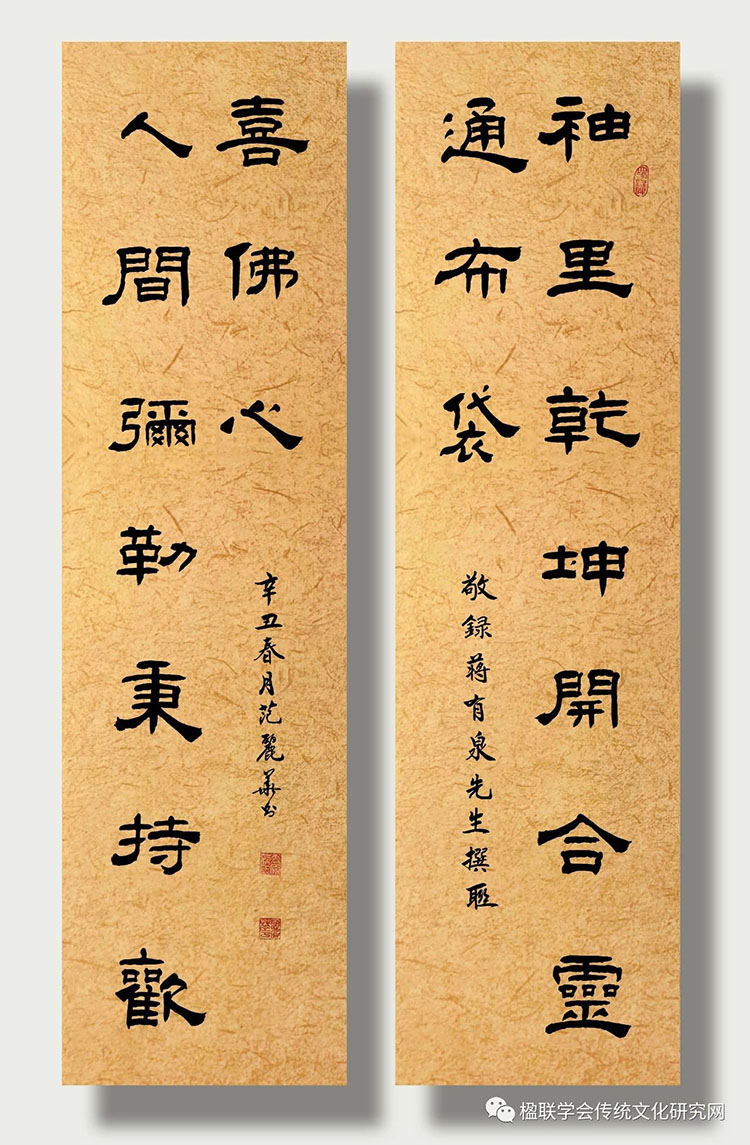 袖里乾坤開合靈
通布袋
敬録蔣有泉先生撰聯
人間彌勒秉持歡
喜佛心
辛丑春月范麗華书
楹联学会传统文化研究网